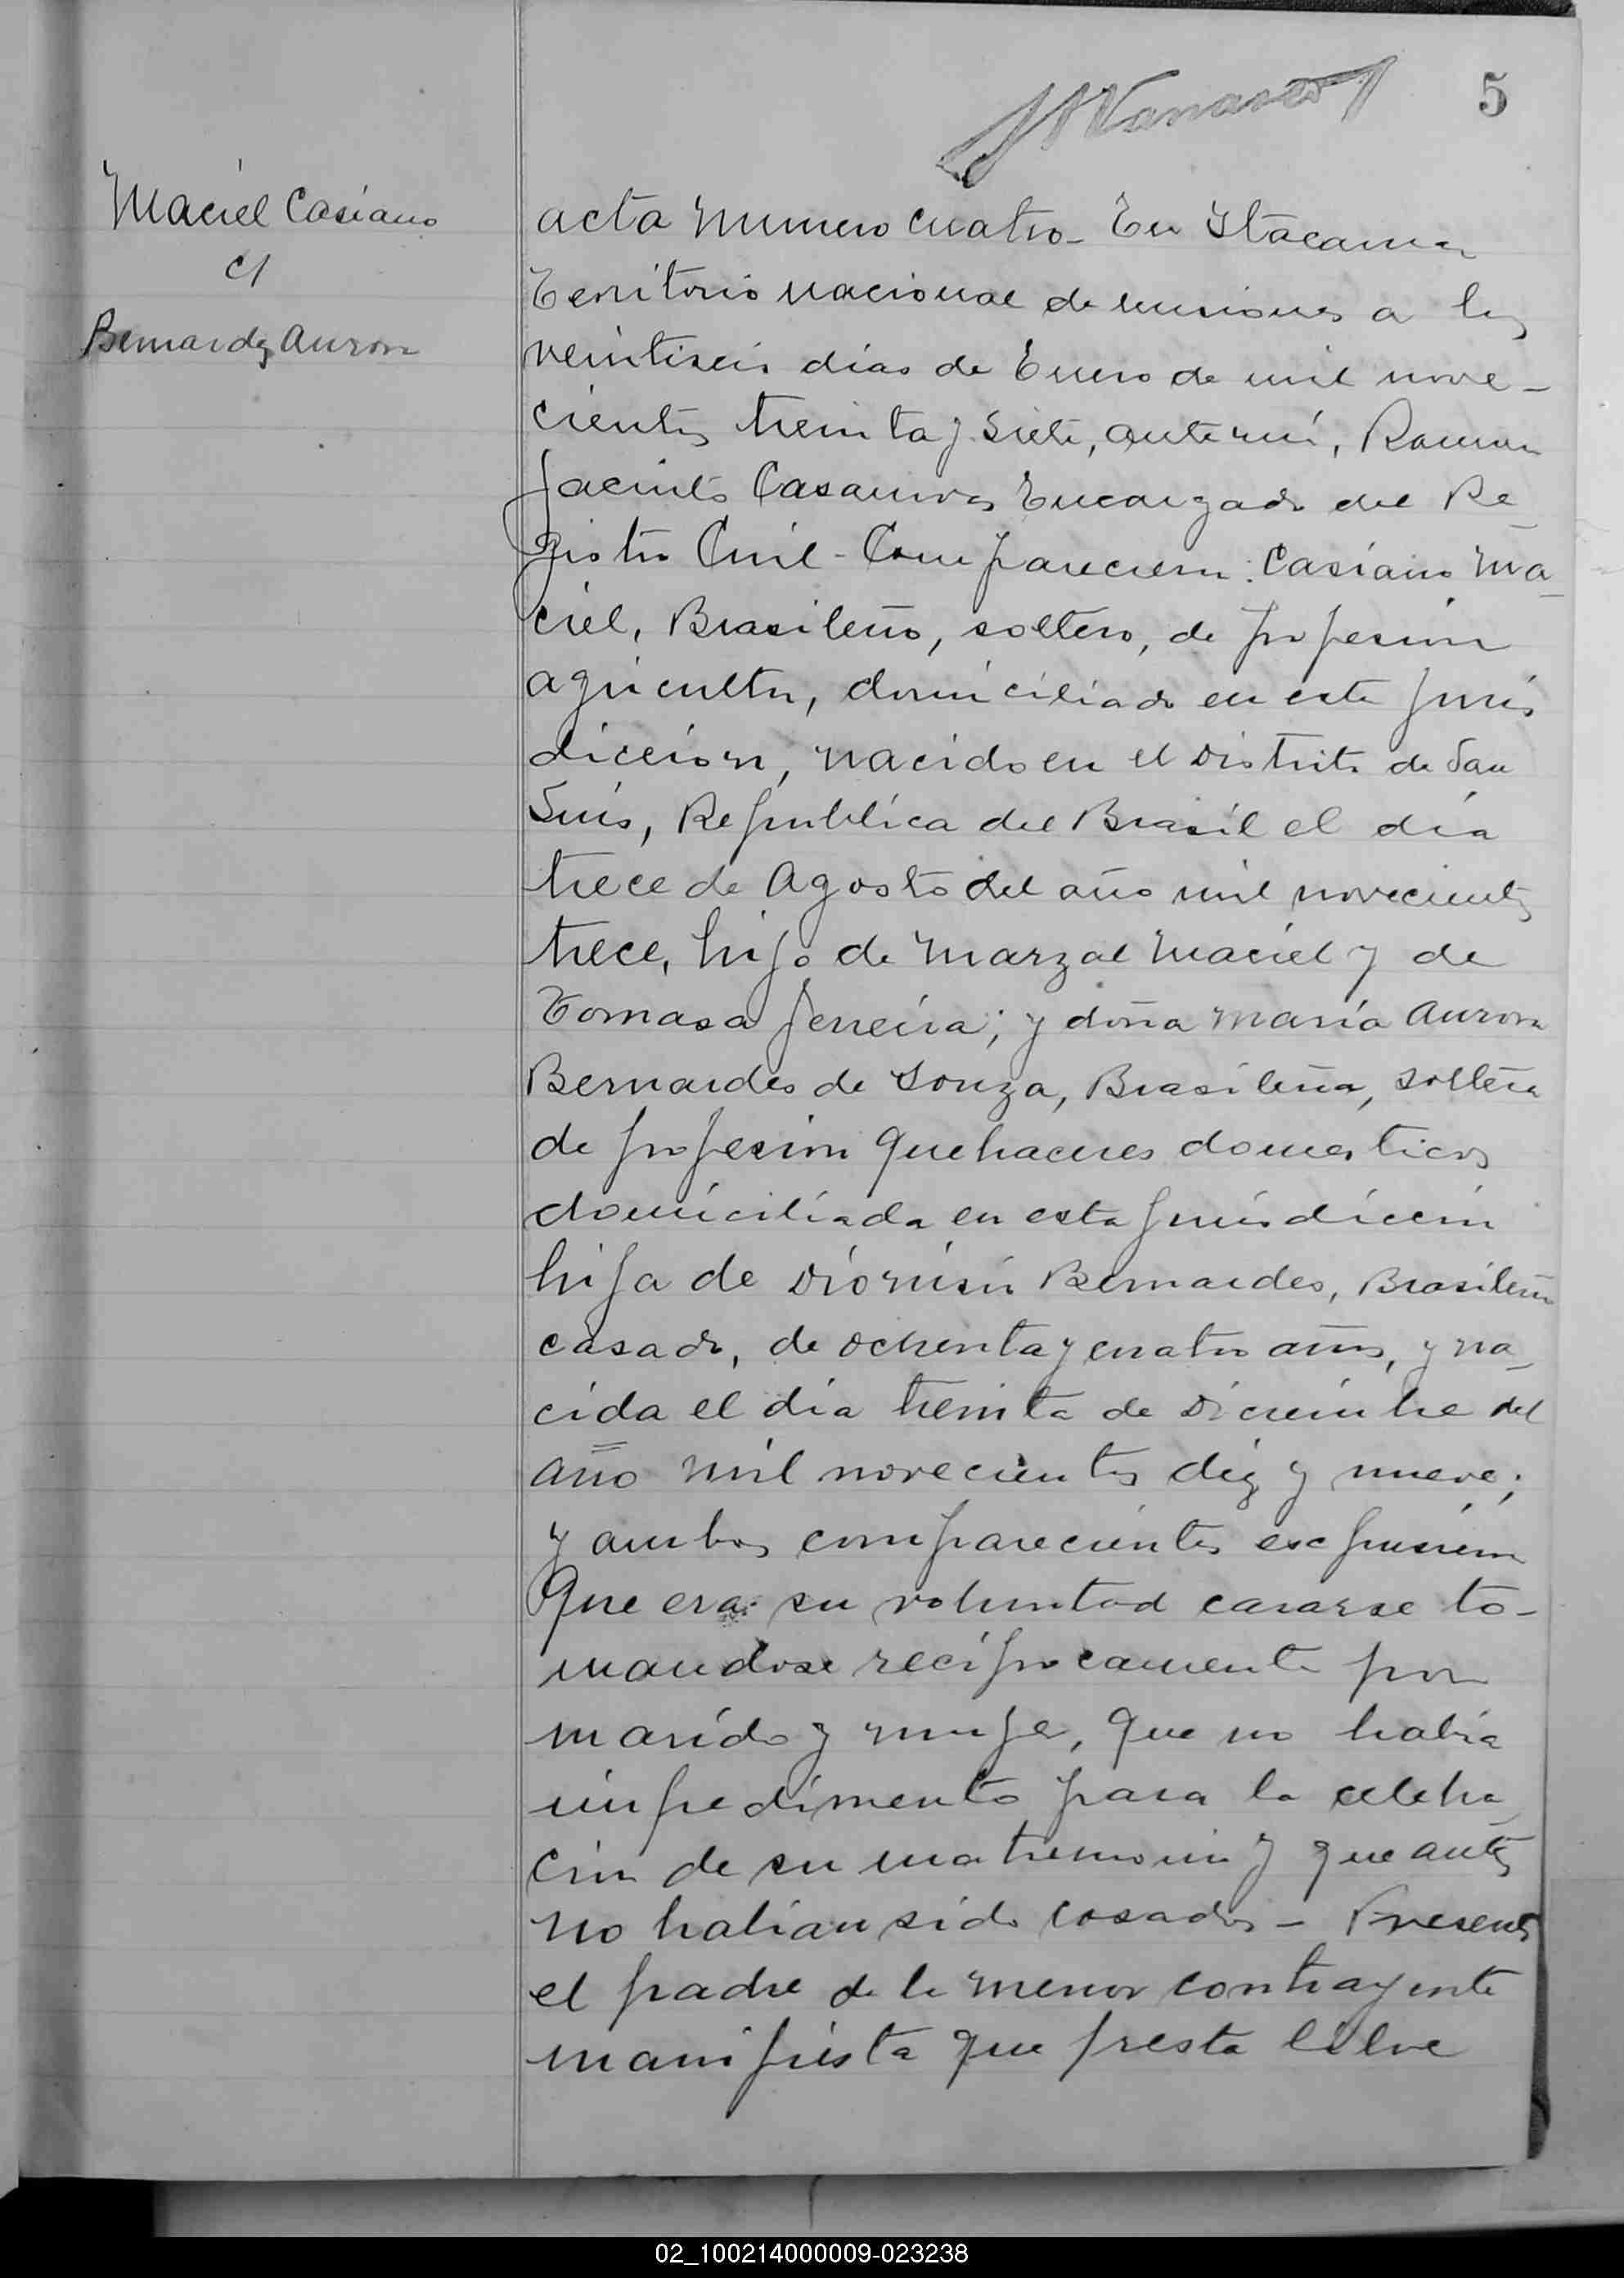 5
Maciel Casiano
c/
Bernardez Aurora
acta numero cuatro - En Itacarua
Territorio nacional de misiones a los
veintiseis días de Enero de mil nove-
cientos treinta y siete, ante mí, Ramon
Jacinto Casanova Encargado del Re-
gistro Civil - Comparecieron: Casiano Ma-
ciel, Brasileño, soltero, de profesion
agricultor, domiciliado en esta juris
diccion, nacido en el Distrito de San
Luis, Republica del Brasil el día
trece de Agosto del año mil novecientos
trece, hijo de Marzal Maciel y de
Tomasa Ferreira; y doña María Aurora
Bernardes de Souza, Brasileña, soltera
de profesion quehaceres domesticos
domiciliada en esta jurisdiccion
hija de Dionisio Bernardes, Brasileño
casado, de ochenta y cuatro años, y na-
cida el día treinta de Diciembre del
año mil novecientos diez y nueve;
y ambos comparecientes expusieron
Que era su voluntad casarse to-
mandose recíprocamente por
marido y mujer, que no había
impedimento para la celebra
cion de su matrimonio y que antes
no habian sido casados - Presente
el padre de la menor contrayente
manifiesta que presta libre
02_100214000009-023238